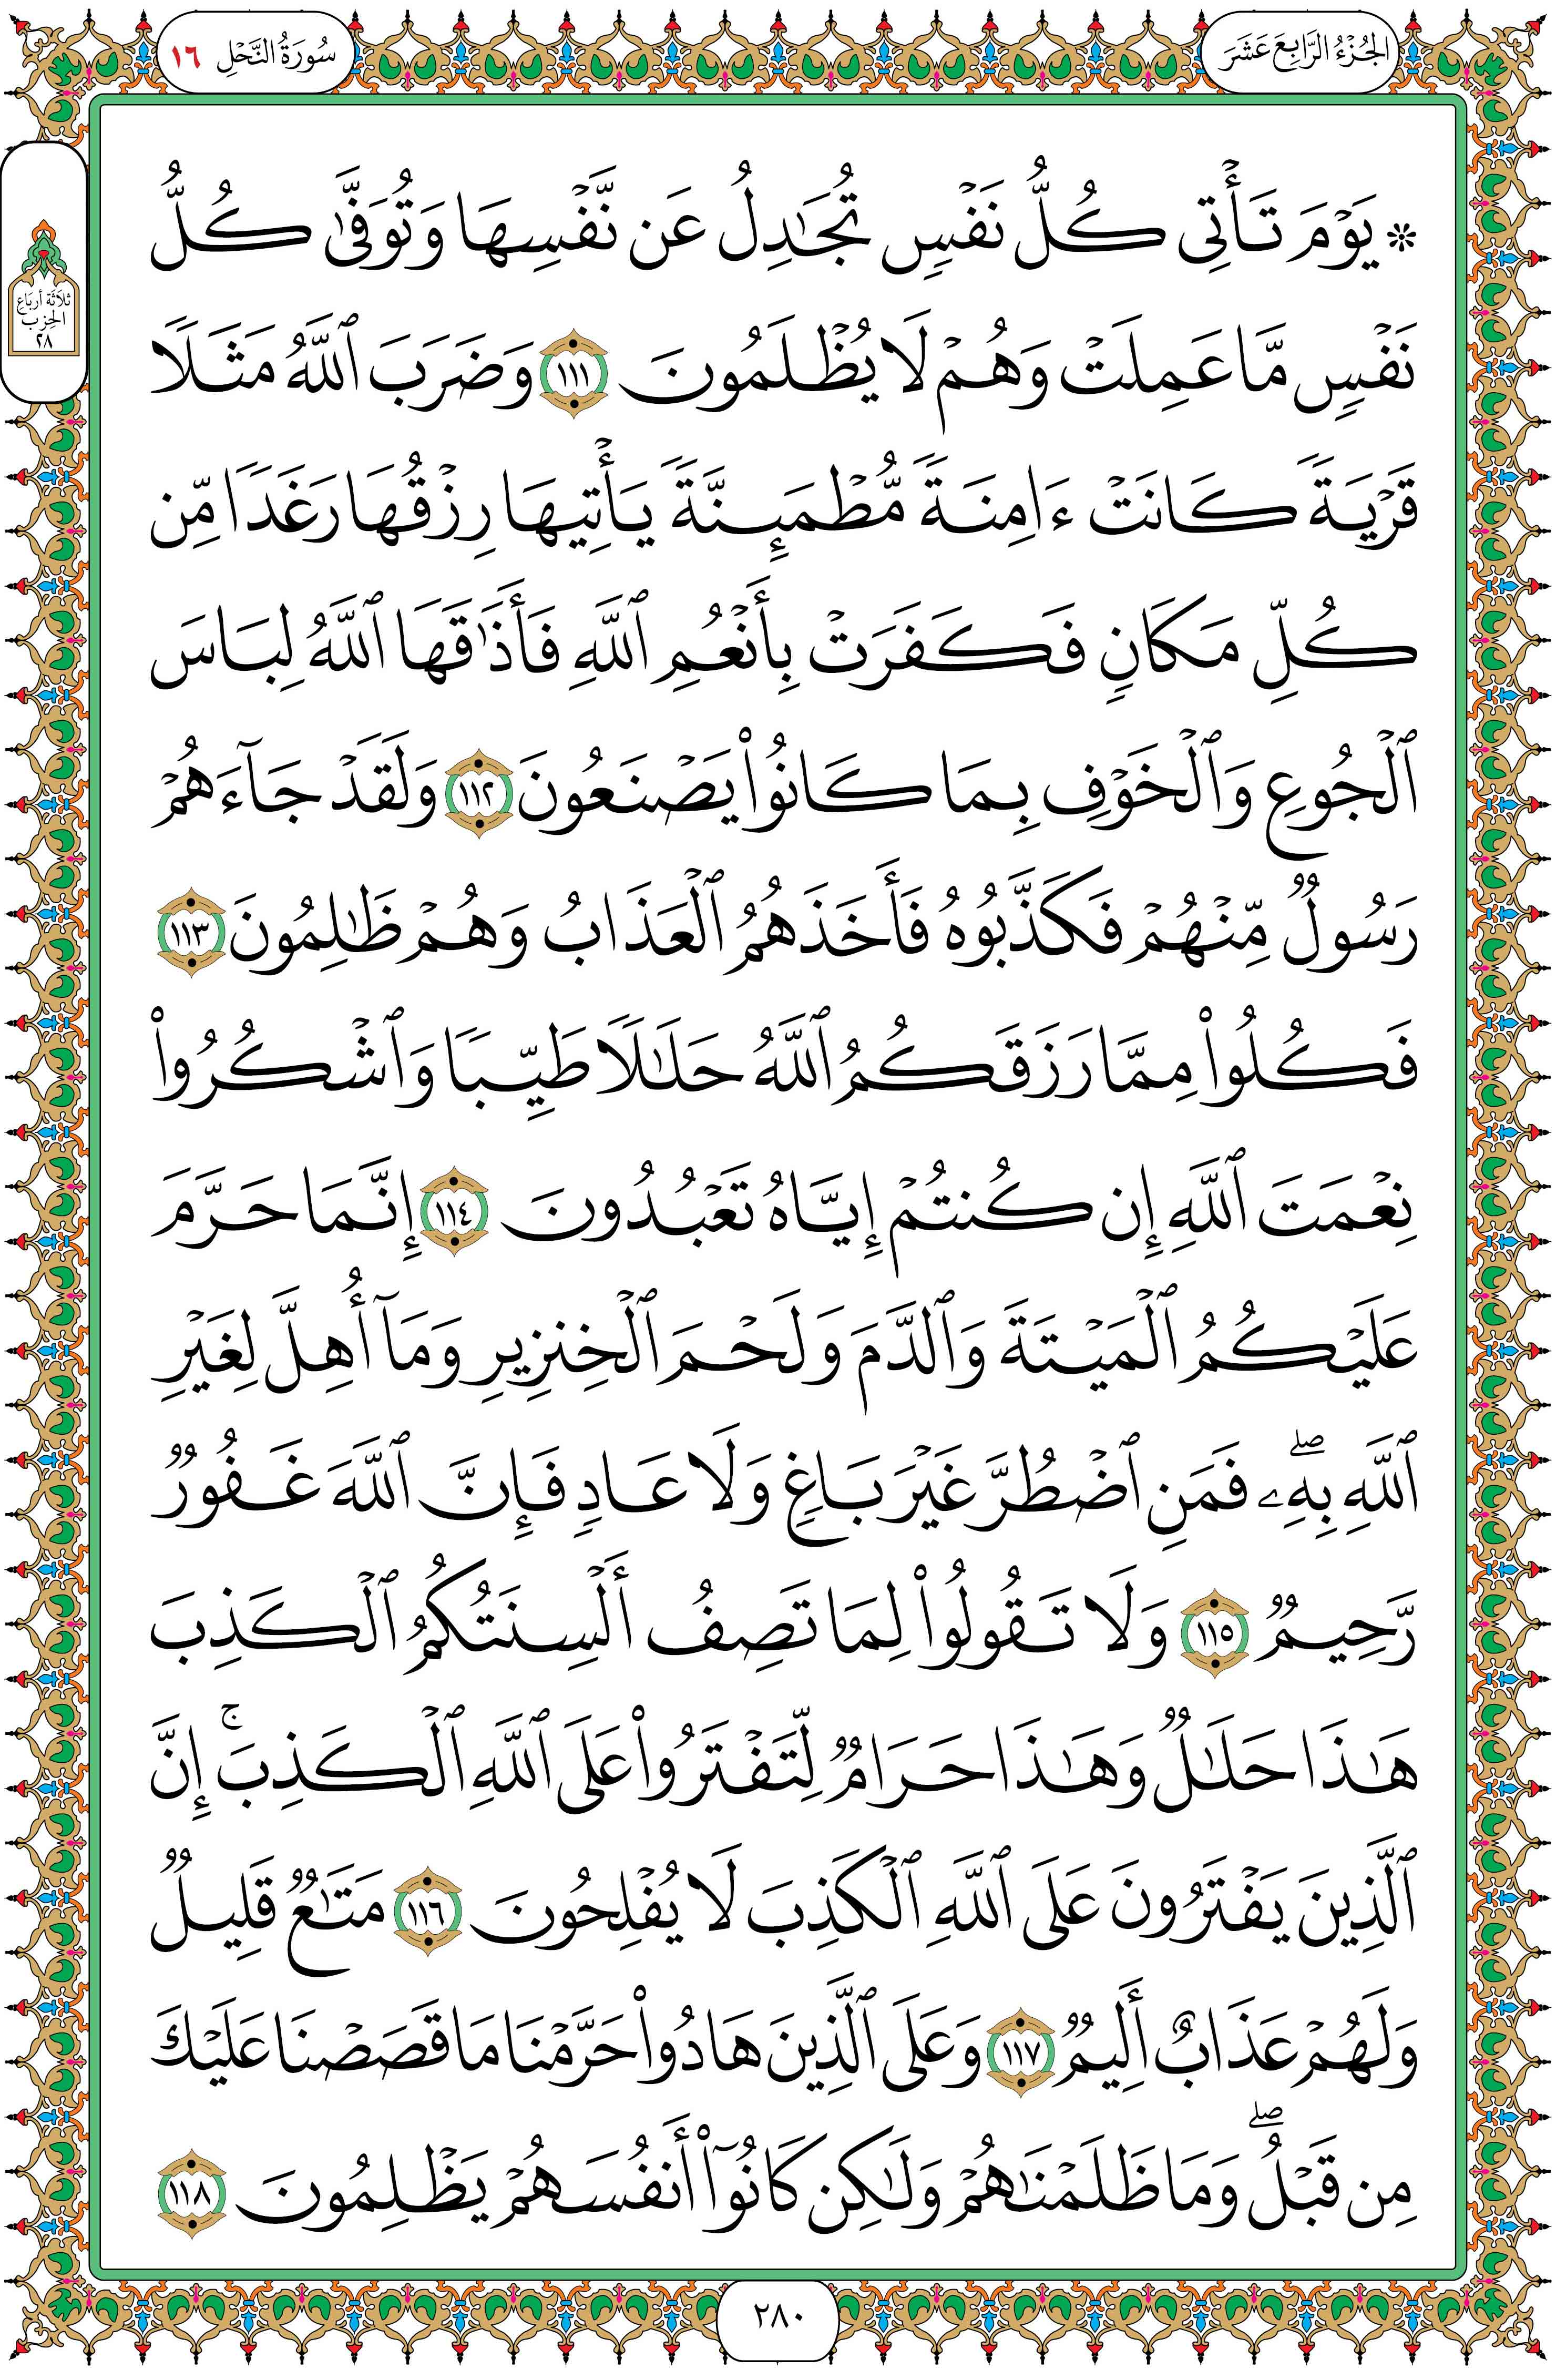 الجُزْءُ الرَّابِعَ عَشَرَ
سُورَةُ النَّحْلِ ١٦
ثلاثة أرباع
الحزب
٢٨
۞ يَوْمَ تَأْتِى كُلُّ نَفْسٍ تُجَٰدِلُ عَن نَّفْسِهَا وَتُوَفَّىٰ كُلُّ
نَفْسٍ مَّا عَمِلَتْ وَهُمْ لَا يُظْلَمُونَ ١١١ وَضَرَبَ ٱللَّهُ مَثَلًا
قَرْيَةً كَانَتْ ءَامِنَةً مُّطْمَئِنَّةً يَأْتِيهَا رِزْقُهَا رَغَدًا مِّن
كُلِّ مَكَانٍ فَكَفَرَتْ بِأَنْعُمِ ٱللَّهِ فَأَذَٰقَهَا ٱللَّهُ لِبَاسَ
ٱلْجُوعِ وَٱلْخَوْفِ بِمَا كَانُوا۟ يَصْنَعُونَ ١١٢ وَلَقَدْ جَآءَهُمْ
رَسُولٌ مِّنْهُمْ فَكَذَّبُوهُ فَأَخَذَهُمُ ٱلْعَذَابُ وَهُمْ ظَٰلِمُونَ ١١٣
فَكُلُوا۟ مِمَّا رَزَقَكُمُ ٱللَّهُ حَلَٰلًا طَيِّبًا وَٱشْكُرُوا۟
نِعْمَتَ ٱللَّهِ إِن كُنتُمْ إِيَّاهُ تَعْبُدُونَ ١١٤ إِنَّمَا حَرَّمَ
عَلَيْكُمُ ٱلْمَيْتَةَ وَٱلدَّمَ وَلَحْمَ ٱلْخِنزِيرِ وَمَآ أُهِلَّ لِغَيْرِ
ٱللَّهِ بِهِۦ ۖ فَمَنِ ٱضْطُرَّ غَيْرَ بَاغٍ وَلَا عَادٍ فَإِنَّ ٱللَّهَ غَفُورٌ
رَّحِيمٌ ١١٥ وَلَا تَقُولُوا۟ لِمَا تَصِفُ أَلْسِنَتُكُمُ ٱلْكَذِبَ
هَٰذَا حَلَٰلٌ وَهَٰذَا حَرَامٌ لِّتَفْتَرُوا۟ عَلَى ٱللَّهِ ٱلْكَذِبَ ۚ إِنَّ
ٱلَّذِينَ يَفْتَرُونَ عَلَى ٱللَّهِ ٱلْكَذِبَ لَا يُفْلِحُونَ ١١٦ مَتَٰعٌ قَلِيلٌ
وَلَهُمْ عَذَابٌ أَلِيمٌ ١١٧ وَعَلَى ٱلَّذِينَ هَادُوا۟ حَرَّمْنَا مَا قَصَصْنَا عَلَيْكَ
مِن قَبْلُ ۖ وَمَا ظَلَمْنَٰهُمْ وَلَٰكِن كَانُوٓا۟ أَنفُسَهُمْ يَظْلِمُونَ ١١٨
٢٨٠